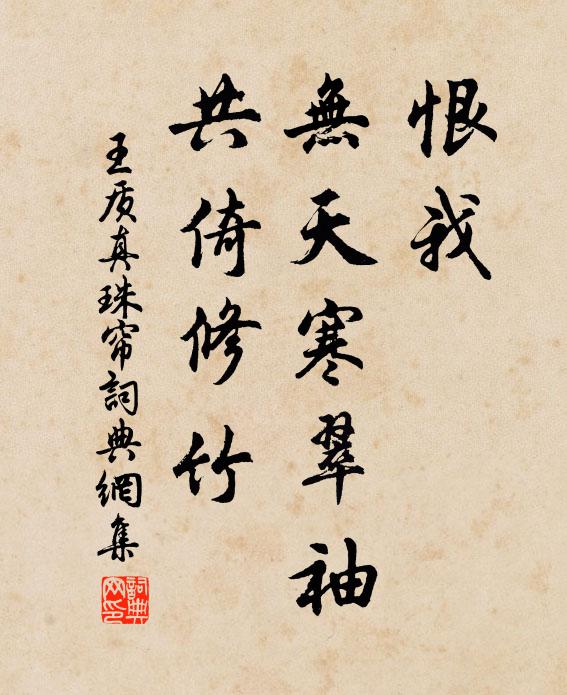 恨我
無天寒翠袖
共倚修竹
王质真珠帘詞典網集
詞典網印